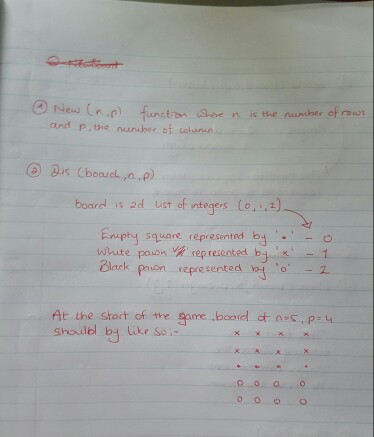 ① New (n,p) function where n is the number of rows
and p, the number of column
② Dis (board, n, p)
board is 2d list of integers (0,1,2)
Empty square represented by '•' - 0
White pawn represented by 'x' - 1
Black pawn represented by 'o' - 2
At the start of the game, board of n=5, p=4
should by like so:-
x x x x
x x x x
• • • •
o o o o
o o o o